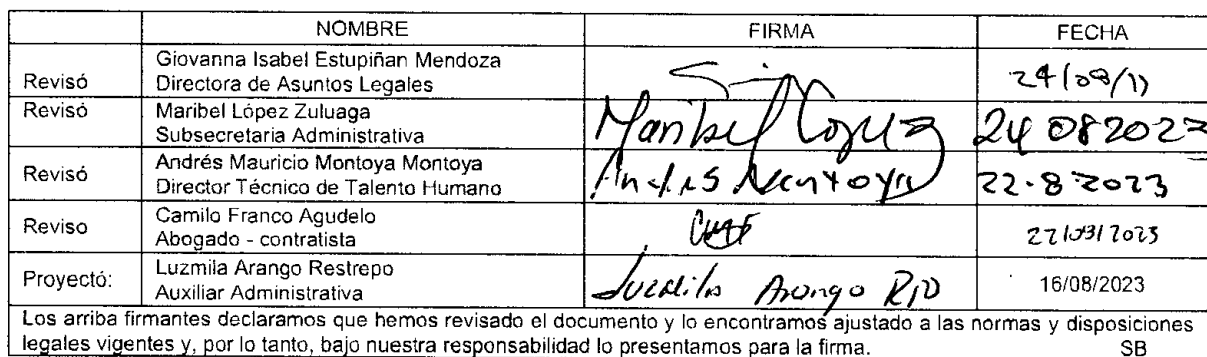 NOMBRE FIRMA FECHA
Giovanna Isabel Estupiñan Mendoza
Revisó Directora de Asuntos Legales
Revisó Maribel López Zuluaga
Subsecretaria Administrativa Maribel 24 08 2023
Andrés Mauricio Montoya Montoya
Revisó Director Técnico de Talento Humano Andrés Montoya 22-8-2023
Reviso Camilo Franco Agudelo
Abogado - contratista
Proyectó: Luzmila Arango Restrepo
Auxiliar Administrativa Luzmila Arango 16/08/2023
Los arriba firmantes declaramos que hemos revisado el documento y lo encontramos ajustado a las normas y disposiciones
legales vigentes y, por lo tanto, bajo nuestra responsabilidad lo presentamos para la firma. SB